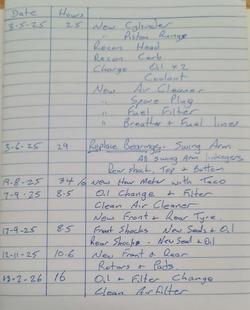 Date Hours
3-5-25 25 New Cylinder
" Piston Rings
Recon Head
Recon Carb
Change Oil x 2
Coolant
New Air Cleaner
" Spare Plug
" Fuel Filter
" Breather + Fuel lines
3-6-25 29 Replace Bearings - Swing Arm
All swing Arm linkages
Rear shock. Top + Bottom
19-8-25 34/0 New Hour Meter with Taco
7-9-25 8.5 Oil Change + Filter
Clean Air Cleaner
New Front + Rear Tyre.
17-9-25 8.5 Front Shocks New Seals + Oil
Rear Shocks - New Seal + Oil
12-11-25 10.6 New Front + Rear
Rotors + Pads.
2-26 16 Oil + Filter Change
Clean Air Filter